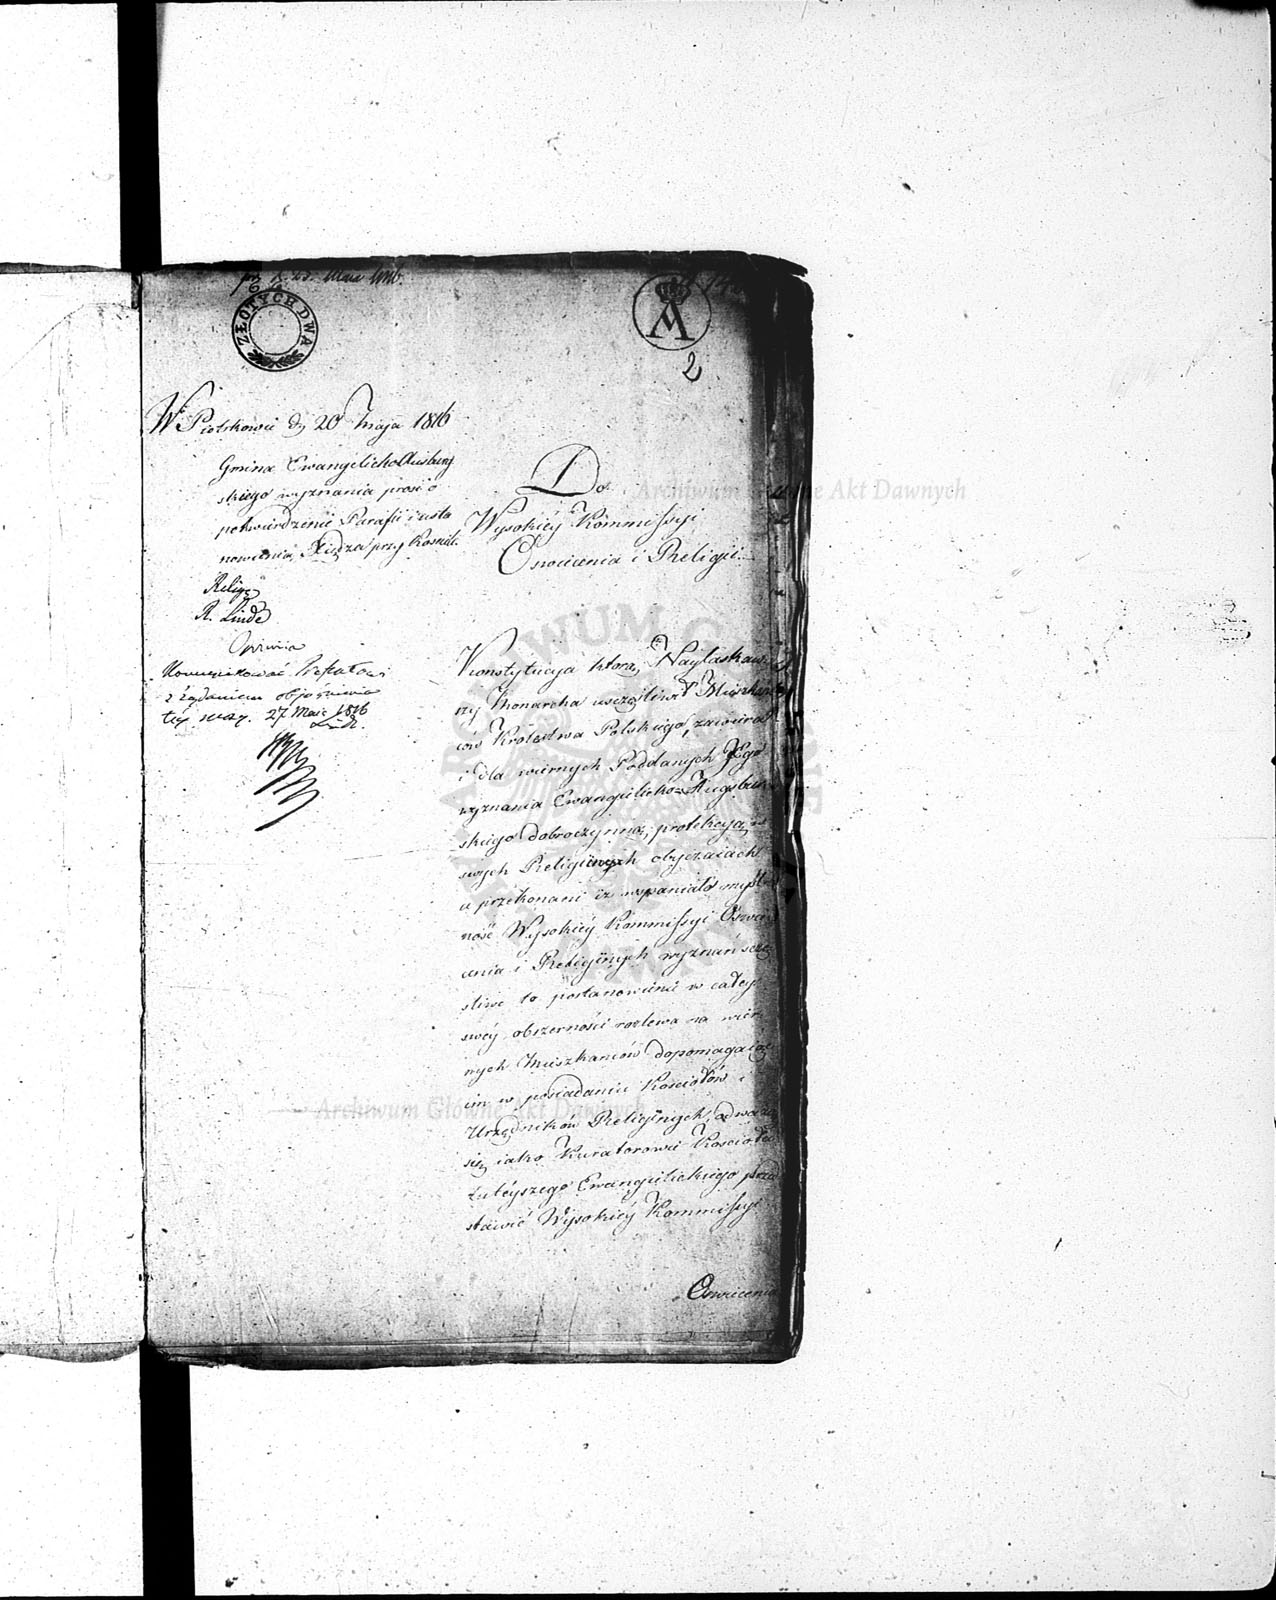 d. 23. Maia 1816.
ZŁOTYCH DWA
A
2
W Piotrkowie d. 20 Maja 1816
Gmina Ewangelicko Ausburg
skiego wyznania prosi o
potwierdzenie Parafii i usta
nowienia Xiędza przy Kościele.
Religie
R. Linde
Opinia
Kommunikować Prefektowi
z żądaniem objaśnienia
27 Maia 1816
Linde.
Do
Wysokiéy Kommissyi
Oswiecenia i Religii
Konstytucya którą Nayłaskaw
szy Monarcha uszczęśliwił Mieszkań
ców Krolestwa Polskiego, zawiera
i dla wiernych Poddanych Jego
wyznania Ewangielicko Augsbur
skiego dobroczynną protekcyą w
swych Religiinych obyczaiach
a przekonani iż wspaniało myśl
ność Wysokiéy Kommissyi Oswie
cenia i Religiinych wyznań szczę
śliwe to postanowienie w całéy
swéy obszerności rozlewa na wier
nych Mieszkańców dopomagaiąc
im w posiadaniu Kościołów i
Urzędników Religiinych, odważa
się iako Kuratorowie Kościoła
tutéyszego Ewangielickiego przed
stawić Wysokiéy Kommissyi
Oswiecenia
Archiwum Główne Akt Dawnych
Archiwum Główne Akt Dawnych